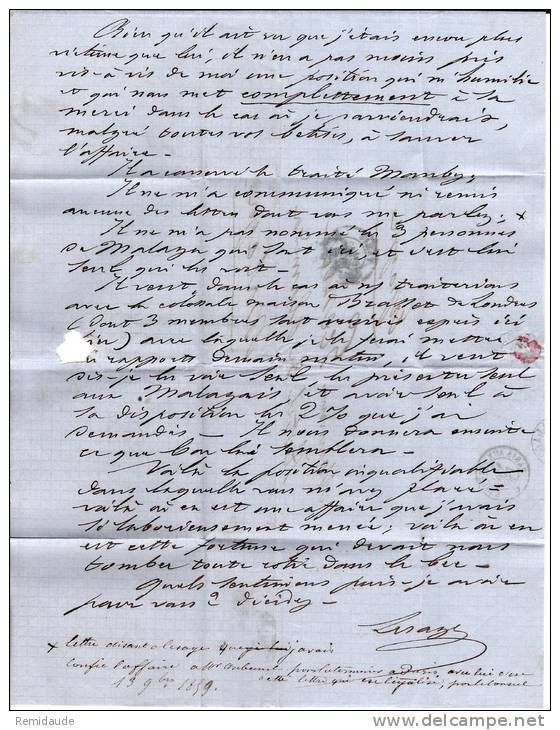 Bien qu'il ait vu que j'étais encor plus
victime que lui, il n'en a pas moins pris
vis-à-vis de moi une position qui m'humilie
et qui nous met complettement à sa
merci dans le cas où je parviendrais,
malgré toutes vos bêtises, à sauver
l'affaire -
Il a conservé le traité Manby;
Il ne m'a communiqué ni remis
aucune des lettres dont vous me parlez; x
Il ne m'a pas nommé les 3 personnes
de Malaga qui sont ici et c'est lui
seul qui les voit -
Il veut, dans le cas où ns traiterions
avec la colossale maison Brasset de Londres
(dont 3 membres sont arrivés exprès ici
hier) avec laquelle je le ferai mettre
en rapports demain matin, il veut
dis-je la voir seul, la présenter seul
aux Malagais, et avoir seul à
sa disposition les 2 % que j'ai
demandés - Il nous donnera ensuite
ce que bon lui semblera -
Voilà la position inqualifiable
dans laquelle vous m'avez placé, -
voilà où en est une affaire que j'avais
si laborieusement menée; voilà où en
est cette fortune qui devait nous
tomber toute rotie dans le bec -
Quels sentimens puis-je avoir
pour vous ? Décidez -
Lesage
x lettre disant a lesage que j'avais
confié l'affaire a Mr
cette lettre
13 9bre 1859.
Remidaude
www.delcampe.net